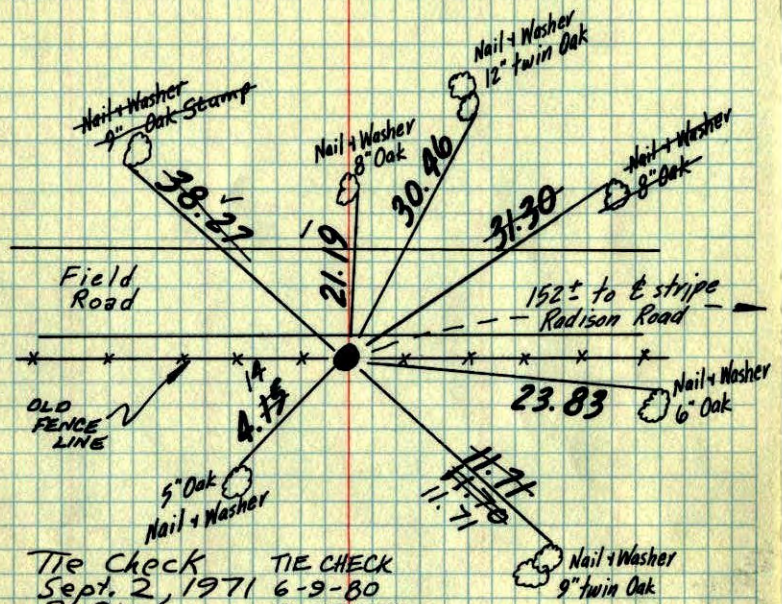 Nail & Washer
12" twin Oak
Nail & Washer
9" Oak Stump
Nail & Washer
8" Oak
Nail & Washer
8" Oak
38.27
21.19
30.46
31.30
Field
Road
152± to ℄ stripe
Radison Road
OLD
FENCE
LINE
14
4.15
23.83
Nail & Washer
6" Oak
5" Oak
Nail & Washer
11.71
11.70
11.71
Nail & Washer
9" twin Oak
Tie Check
Sept. 2, 1971
TIE CHECK
6-9-80